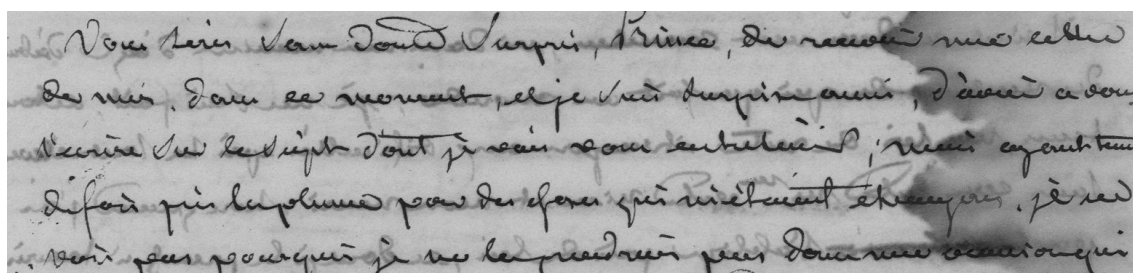 Vous serés sans doute surpris, Prince, de recevoir une lettre
de moi, dans ce moment, et je suis surprise aussi, d'avoir a vous
écrire sur le sujet dont je vais vous entretenir; mais ayant tant
de fois pris la plume pour des choses qui m'étaient étrangeres, je ne
vois pas pourquoi je ne la prendrois pas dans une occasion qui